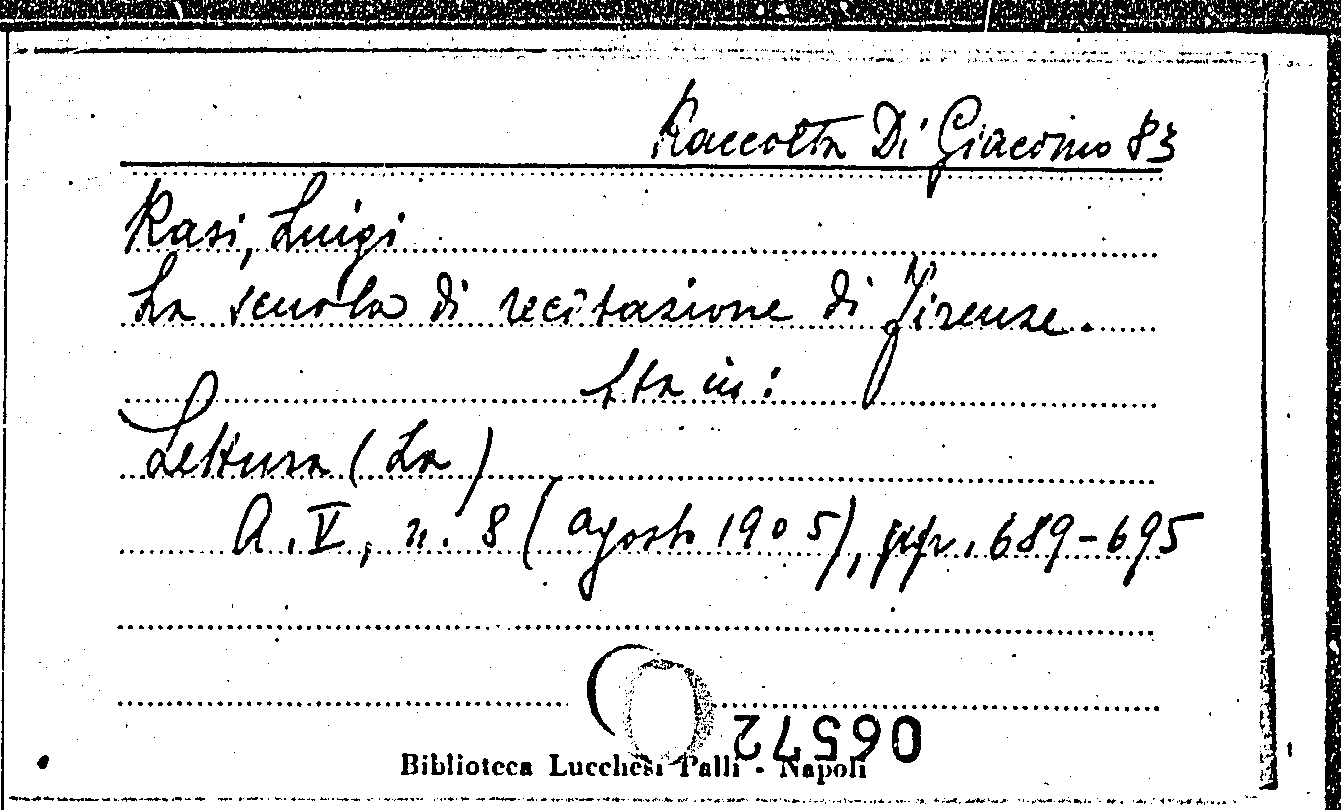 Raccolta Di Giacomo 83
Rasi, Luigi
La scuola di recitazione di Firenze.
Sta in:
Lettura (La)
A. V, n. 8 (agosto 1905), pp. 689-695
06572
Biblioteca Lucchesi Palli - Napoli